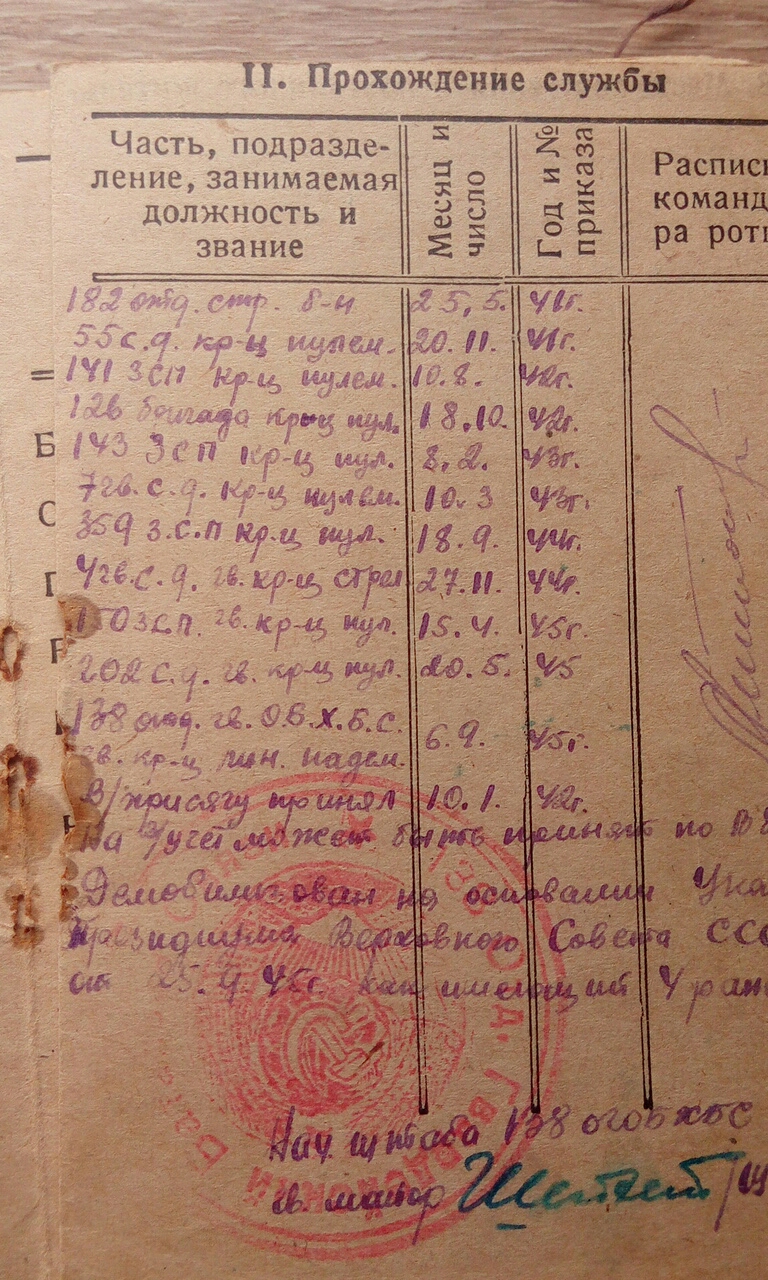 II. Прохождение службы
Часть, подразде-
ление, занимаемая
должность и
звание
Месяц и
число
Год и №
приказа
Распис
команд
ра рот
182 отд. стр. б-н 25.5. 41г.
55 с.д. кр-ц пулем. 20.11. 41г.
141 ЗСП кр-ц пулем. 10.8. 42г.
126 бригада кр-ц пул. 18.10. 42г.
143 ЗСП кр-ц пул. 8.2. 43г.
7 гв. с.д. кр-ц пулем. 10.3 43г.
359 з.с.п кр-ц пул. 18.9. 44г.
4 гв. с.д. гв. кр-ц стрел 27.11. 44г.
150 зсп. гв. кр-ц пул. 15.4. 45г.
202 с.д. гв. кр-ц пул. 20.5. 45
138 отд. гв. О.Б.Х.Б.С. 6.9. 45г.
гв. кр-ц лин. надсм.
В/присягу принял 10.1. 42г.
На в/учет может быть принят по
Демобилизован на основании Ука
Президиума Верховного Совета ССС
от 25.9.45г. как имеющий 4 ран
Нач. штаба 138
гв. майор